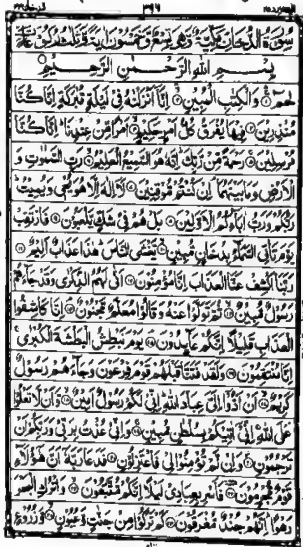 سُوْرَةُ الدُّخَانِ مَكِّيَّةٌ وَّهِيَ تِسْعٌ وَّخَمْسُوْنَ اٰيَةً وَّثَلٰثُ رُكُوْعَاتٍ
بِسْمِ اللّٰهِ الرَّحْمٰنِ الرَّحِيْمِ
حٰمٓ ۝ وَالْكِتٰبِ الْمُبِيْنِ ۝ اِنَّاۤ اَنْزَلْنٰهُ فِيْ لَيْلَةٍ مُّبٰرَكَةٍ اِنَّا كُنَّا
مُنْذِرِيْنَ ۝ فِيْهَا يُفْرَقُ كُلُّ اَمْرٍ حَكِيْمٍ ۝ اَمْرًا مِّنْ عِنْدِنَا ؕ اِنَّا كُنَّا
مُرْسِلِيْنَ ۝ رَحْمَةً مِّنْ رَّبِّكَ ؕ اِنَّهٗ هُوَ السَّمِيْعُ الْعَلِيْمُ ۝ رَبِّ السَّمٰوٰتِ وَ
الْاَرْضِ وَمَا بَيْنَهُمَا ۘ اِنْ كُنْتُمْ مُّوْقِنِيْنَ ۝ لَاۤ اِلٰهَ اِلَّا هُوَ يُحْيٖ وَيُمِيْتُ ؕ
رَبُّكُمْ وَرَبُّ اٰبَآئِكُمُ الْاَوَّلِيْنَ ۝ بَلْ هُمْ فِيْ شَكٍّ يَّلْعَبُوْنَ ۝ فَارْتَقِبْ
يَوْمَ تَاْتِي السَّمَآءُ بِدُخَانٍ مُّبِيْنٍ ۝ يَّغْشَى النَّاسَ ؕ هٰذَا عَذَابٌ اَلِيْمٌ ۝
رَبَّنَا اكْشِفْ عَنَّا الْعَذَابَ اِنَّا مُؤْمِنُوْنَ ۝ اَنّٰى لَهُمُ الذِّكْرٰى وَقَدْ جَآءَهُمْ
رَسُوْلٌ مُّبِيْنٌ ۝ ثُمَّ تَوَلَّوْا عَنْهُ وَقَالُوْا مُعَلَّمٌ مَّجْنُوْنٌ ۝ اِنَّا كَاشِفُوا
الْعَذَابِ قَلِيْلًا اِنَّكُمْ عَآئِدُوْنَ ۝ يَوْمَ نَبْطِشُ الْبَطْشَةَ الْكُبْرٰى ۚ
اِنَّا مُنْتَقِمُوْنَ ۝ وَلَقَدْ فَتَنَّا قَبْلَهُمْ قَوْمَ فِرْعَوْنَ وَجَآءَهُمْ رَسُوْلٌ
كَرِيْمٌ ۝ اَنْ اَدُّوْۤا اِلَيَّ عِبَادَ اللّٰهِ ؕ اِنِّيْ لَكُمْ رَسُوْلٌ اَمِيْنٌ ۝ وَّاَنْ لَّا تَعْلُوْا
عَلَى اللّٰهِ ۚ اِنِّيْۤ اٰتِيْكُمْ بِسُلْطٰنٍ مُّبِيْنٍ ۝ وَاِنِّيْ عُذْتُ بِرَبِّيْ وَرَبِّكُمْ اَنْ
تَرْجُمُوْنِ ۝ وَاِنْ لَّمْ تُؤْمِنُوْا لِيْ فَاعْتَزِلُوْنِ ۝ فَدَعَا رَبَّهٗۤ اَنَّ هٰۤؤُلَآءِ
قَوْمٌ مُّجْرِمُوْنَ ۝ فَاَسْرِ بِعِبَادِيْ لَيْلًا اِنَّكُمْ مُّتَّبَعُوْنَ ۝ وَاتْرُكِ الْبَحْرَ
رَهْوًا ؕ اِنَّهُمْ جُنْدٌ مُّغْرَقُوْنَ ۝ كَمْ تَرَكُوْا مِنْ جَنّٰتٍ وَّعُيُوْنٍ ۝ وَّزُرُوْعٍ وَّ